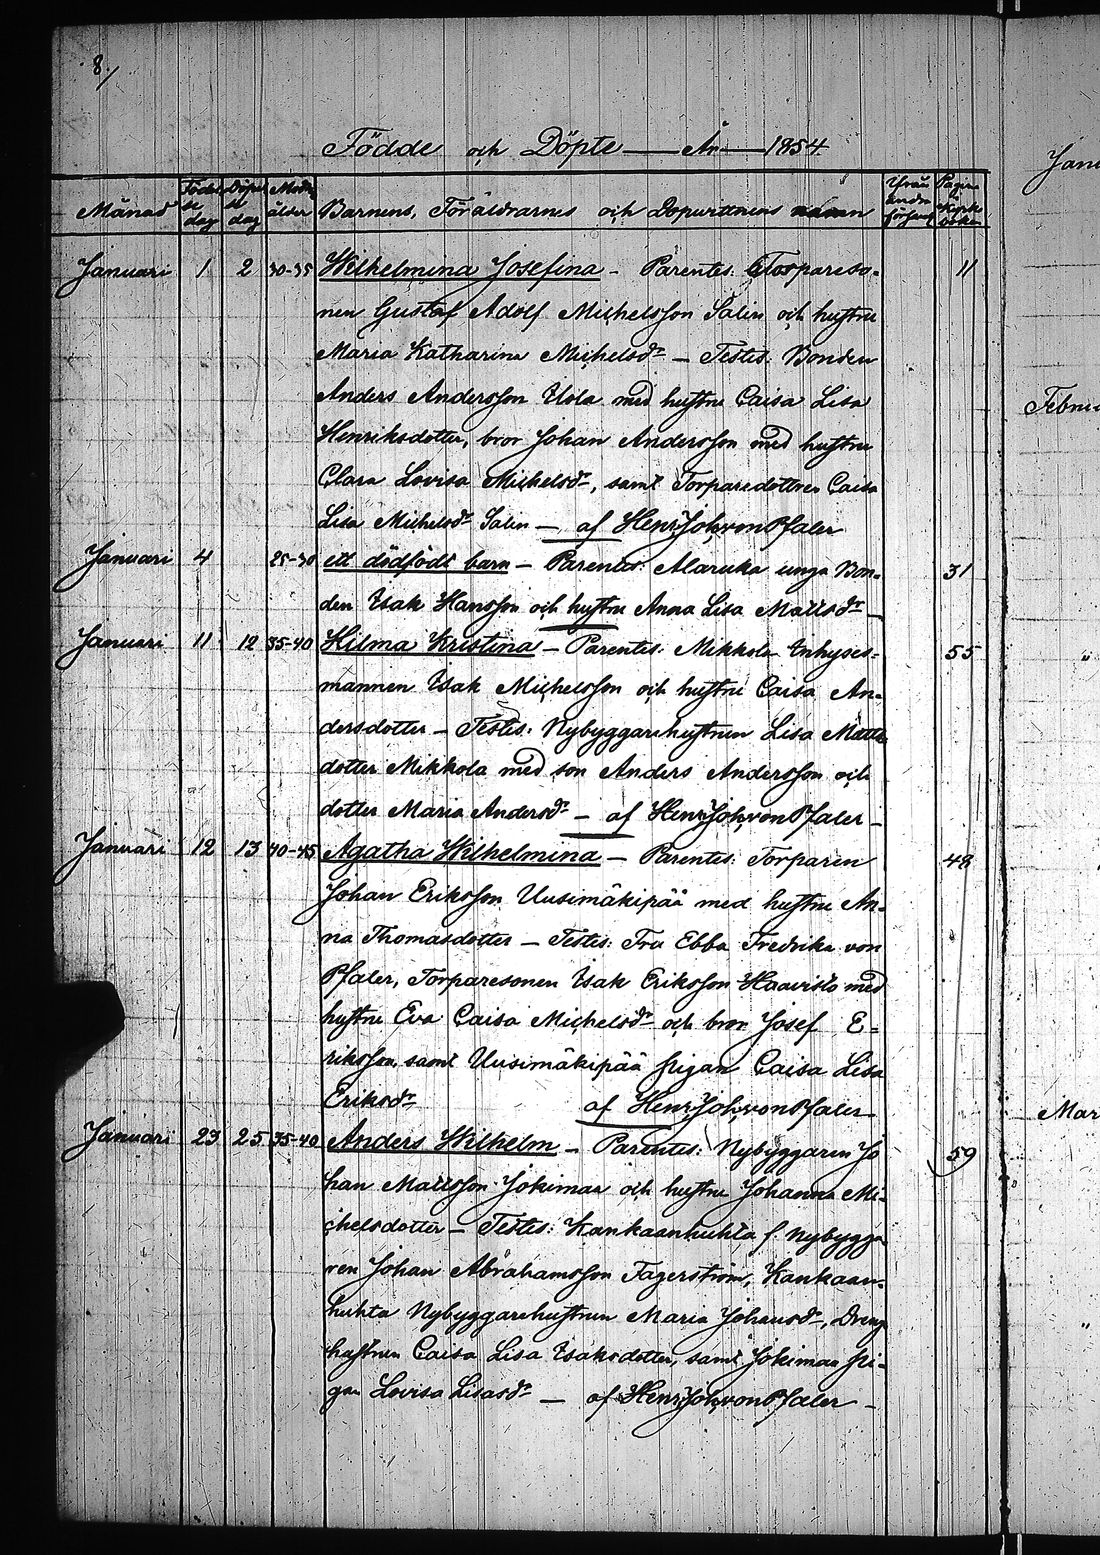 8/
Födde och Döpte — År — 1854.
Månad Födelse dag Döpelse dag Modrs ålder Barnens, Föräldrarnes och Dopvittnens namn Pagina i Kyrkoboken
Januari 1 2 30-35 Wilhelmina Josefina — Parentes: Torpareso- 11
nen Gustaf Adolf Michelsson Salin och hustru
Maria Katharina Michelsdr — Testes: Bonden
Anders Andersson Uola med hustru Caisa Lisa
Henriksdotter, bror Johan Andersson med hustru
Clara Lovisa Michelsdr, samt Torparedottren Caisa
Lisa Michelsdr Salin — af Henr. Joh. von Pfaler
Januari 4 25-30 ett dödfödt barn — Parentes: Alaruka unga Bon- 31
den Isak Hansson och hustru Anna Lisa Mattsdr —
Januari 11 12 35-40 Hilma Kristina — Parentes: Mikkola Inhyses- 55
mannen Isak Michelsson och hustru Caisa An-
dersdotter — Testes: Nybyggarehustrun Lisa Matts
dotter Mikkola med son Anders Andersson och
dotter Maria Andersdr — af Henr. Joh. von Pfaler —
Januari 12 13 40-45 Agatha Wilhelmina — Parentes: Torparen 48
Johan Eriksson Uusimäkipää med hustru An-
na Thomasdotter — Testes: Fru Ebba Fredrika von
Pfaler, Torparesonen Isak Eriksson Haavisto med
hustru Eva Caisa Michelsdr och bror Josef E-
riksson, samt Uusimäkipää pigan Caisa Lisa
Eriksdr af Henr. Joh. von Pfaler —
Januari 23 25 35-40 Anders Wilhelm — Parentes: Nybyggaren Jo 59
han Mattsson Jokimaa och hustru Johanna Mi-
chelsdotter — Testes: Kankaanhuhta f. Nybygga
ren Johan Abrahamsson Fagerström, Kankaan-
huhta Nybyggarehustrun Maria Johansdr, Dreng
hustrun Caisa Lisa Isaksdotter, samt Jokimaa pi-
gan Lovisa Lisasdr — af Henr. Joh. von Pfaler —